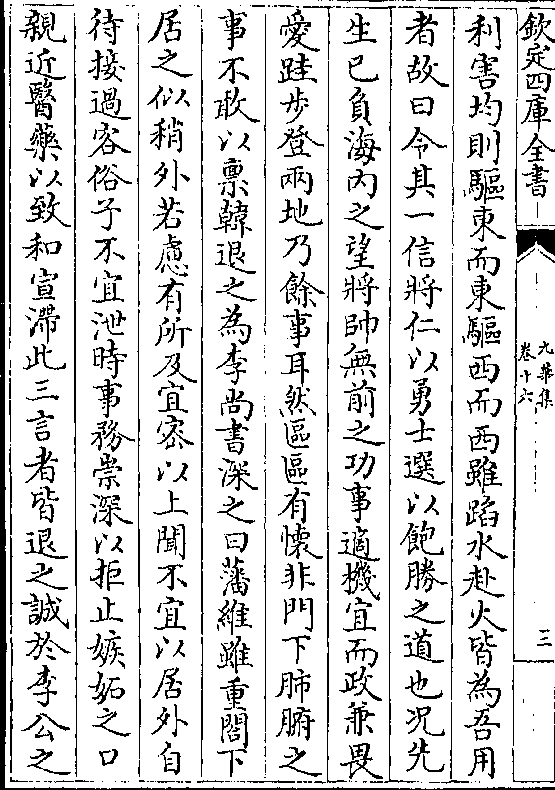 欽定四庫全書
九華集
卷十六
三
利害均則驅東而東驅西而西雖蹈水赴火皆為吾用
者故曰令其一信將仁以勇士選以飽勝之道也况先
生已負海内之望將帥無前之功事適機宜而政兼畏
愛跬步登兩地乃餘事耳然區區有懷非門下肺腑之
事不敢以禀韓退之為李尚書深之曰藩維雖重閤下
居之似稍外若慮有所及宜密以上聞不宜以居外自
待接過客俗子不宜泄時事務崇深以拒止嫉妬之口
親近醫藥以致和宣滯此三言者皆退之誠於李公之